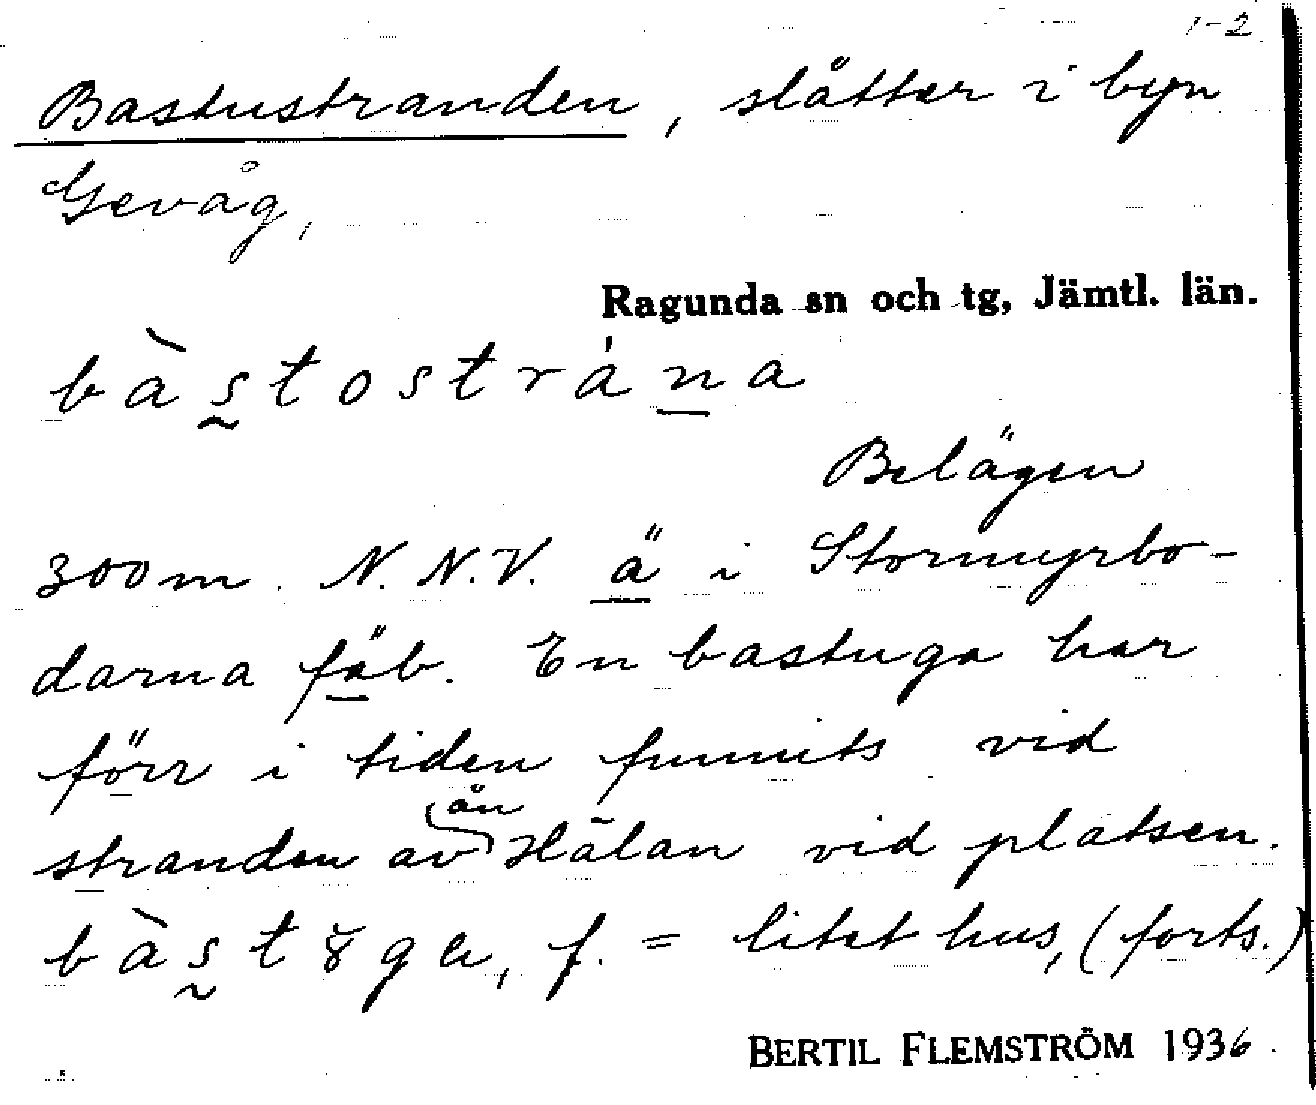 1-2
Bastustranden, slåtter i byn
Gevåg,
Ragunda sn och tg, Jämtl. län.
bàstostrána
Belägen
300 m. N.N.V. ä i Stormyrbo-
darna fäb. En bastuga har
förr i tiden funnits vid
stranden av ån Hälan vid platsen.
bàstȣga, f. = litet hus, (forts.)
BERTIL FLEMSTRÖM 1936.